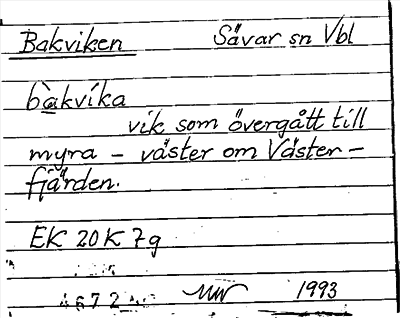 Bakviken Sävar sn Vbl
bàkvíka
vik som övergått till
myra – väster om Väster-
fjärden.
EK 20K 7g
4672 1993